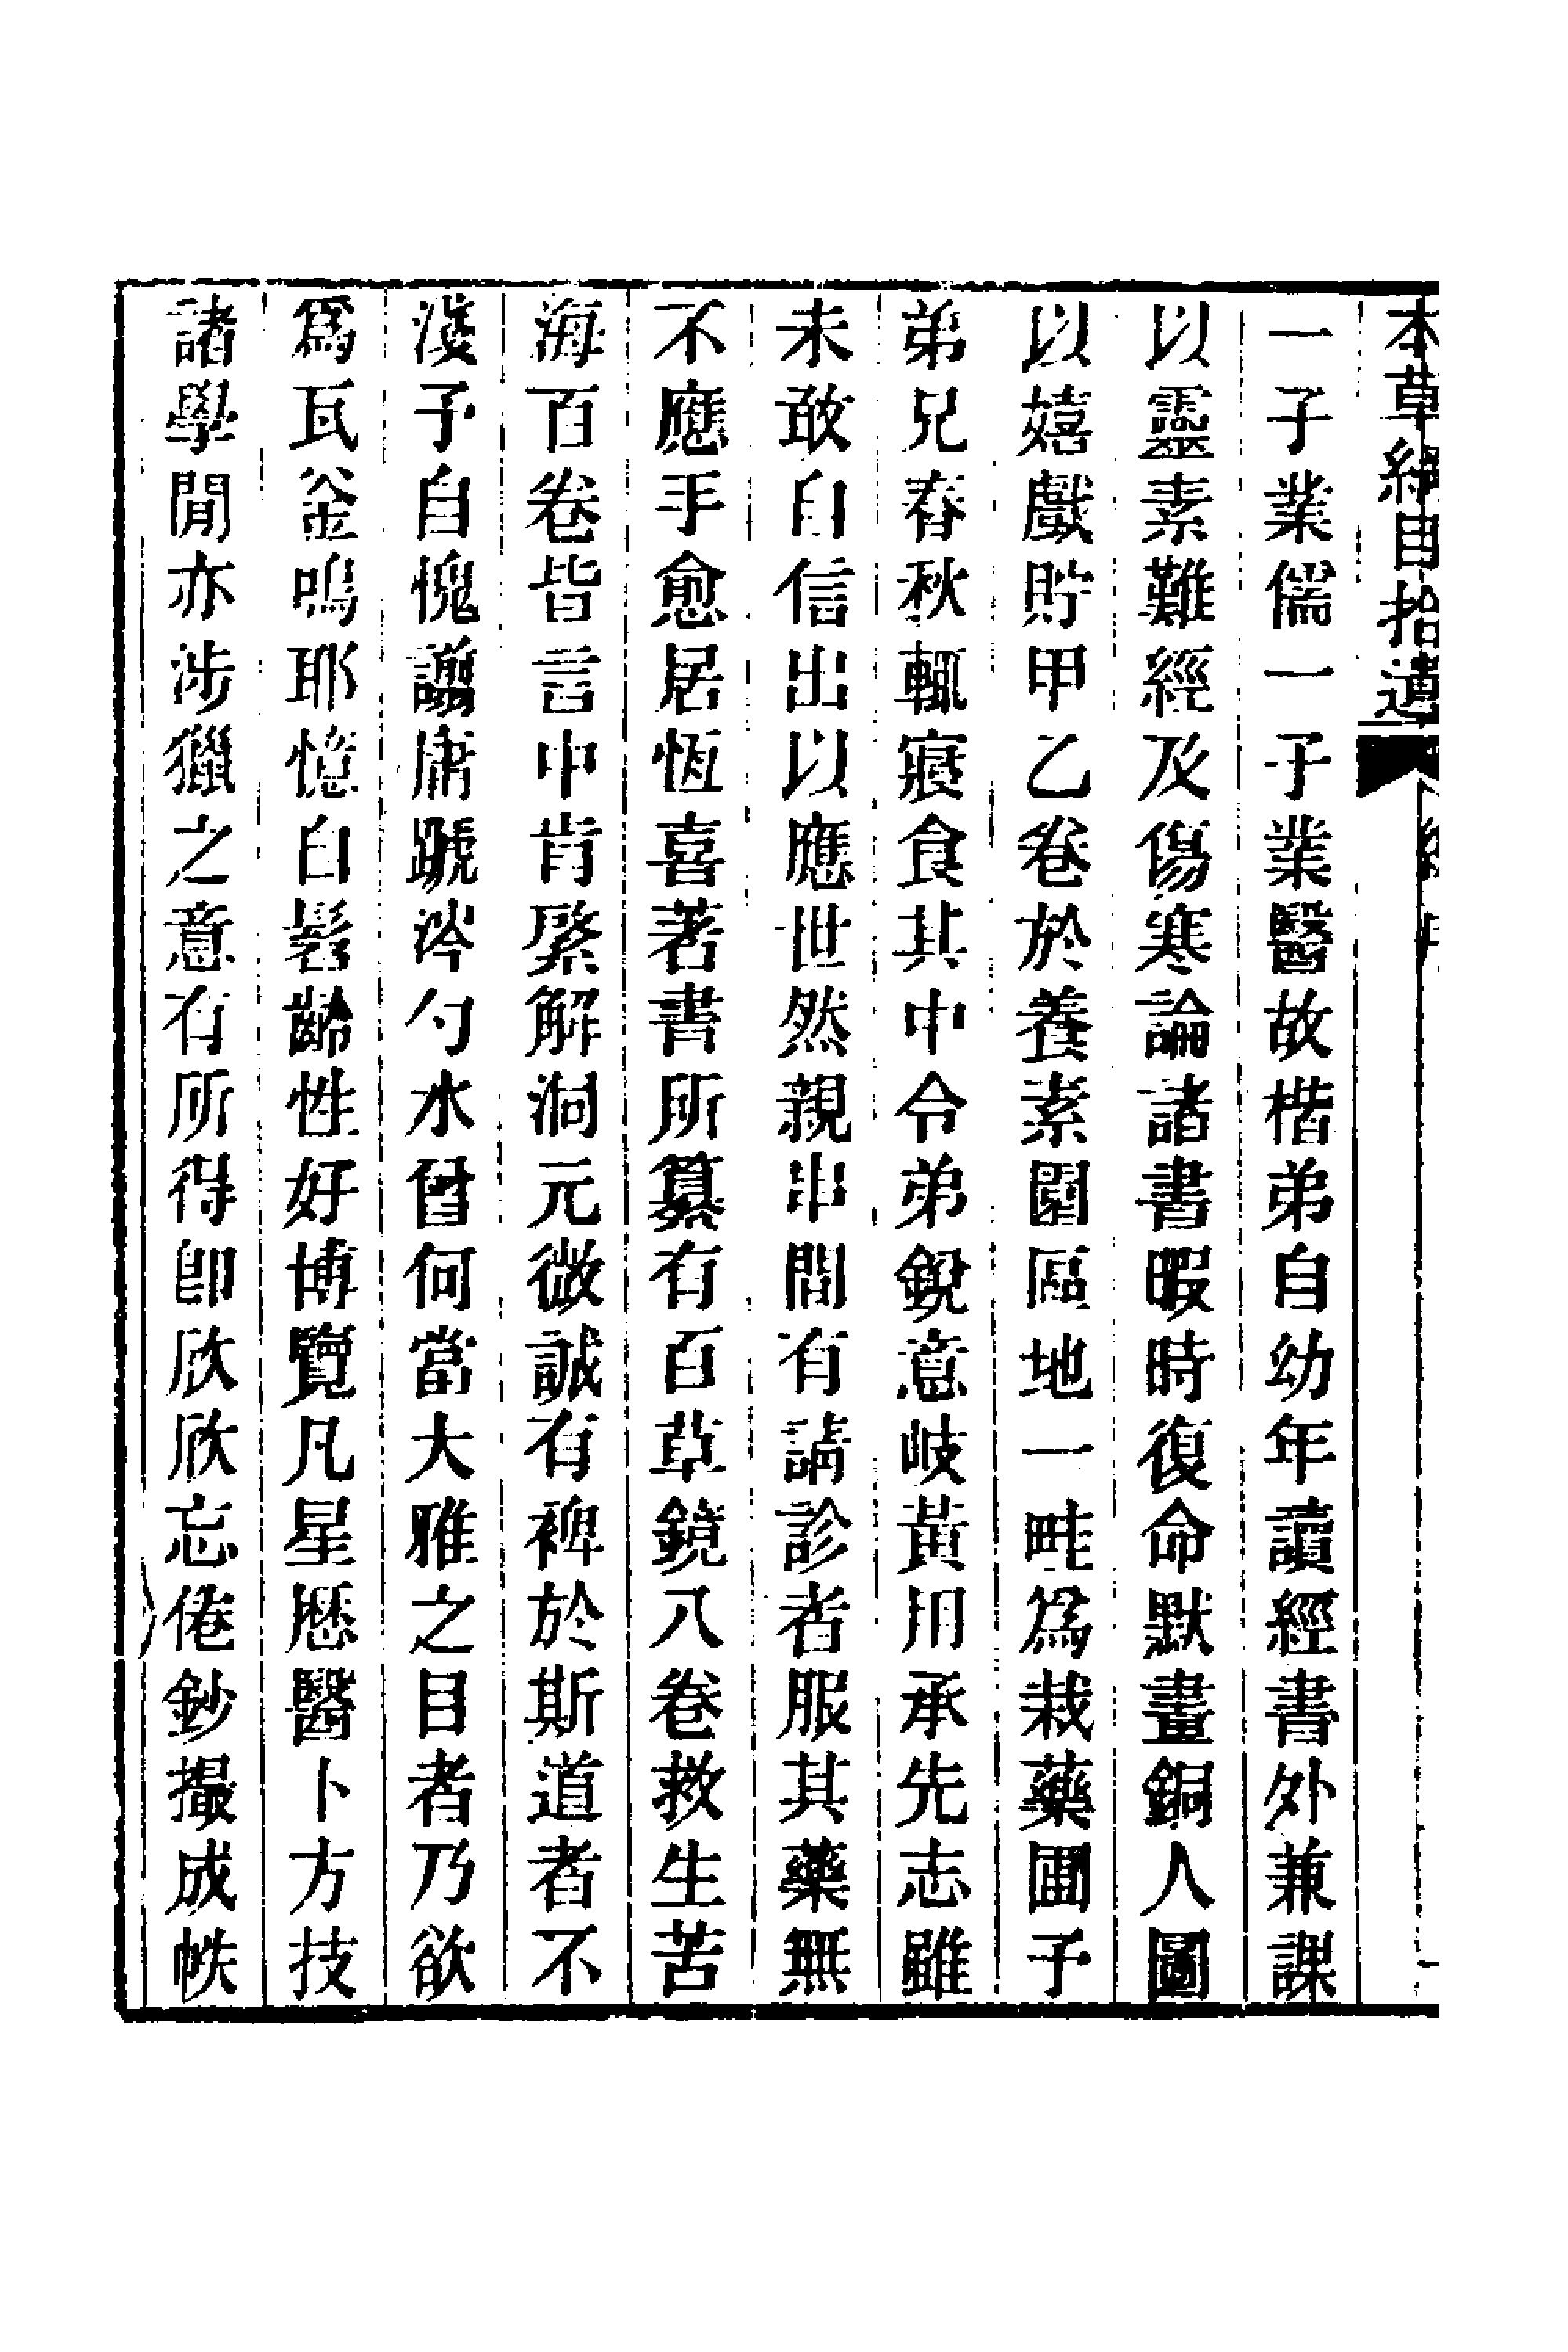 本草綱目拾遺
一子業儒一子業醫故楷弟自幼年讀經書外兼課
以靈素難經及傷寒論諸書暇時復命默畫銅人圖
以嬉戲貯甲乙卷於養素園區地一畦爲栽藥圃予
弟兄春秋輒寢食其中令弟銳意岐黃用承先志雖
未敢自信出以應世然親串間有請診者服其藥無
不應手愈居恆喜著書所纂有百草鏡八卷救生苦
海百卷皆言中肯綮解洞元微誠有裨於斯道者不
淺予自愧譾庸蹏涔勺水曾何當大雅之目者乃欲
爲瓦釜鳴耶憶自髫齡性好博覽凡星歷醫卜方技
諸學閒亦涉獵之意有所得卽欣欣忘倦鈔撮成帙